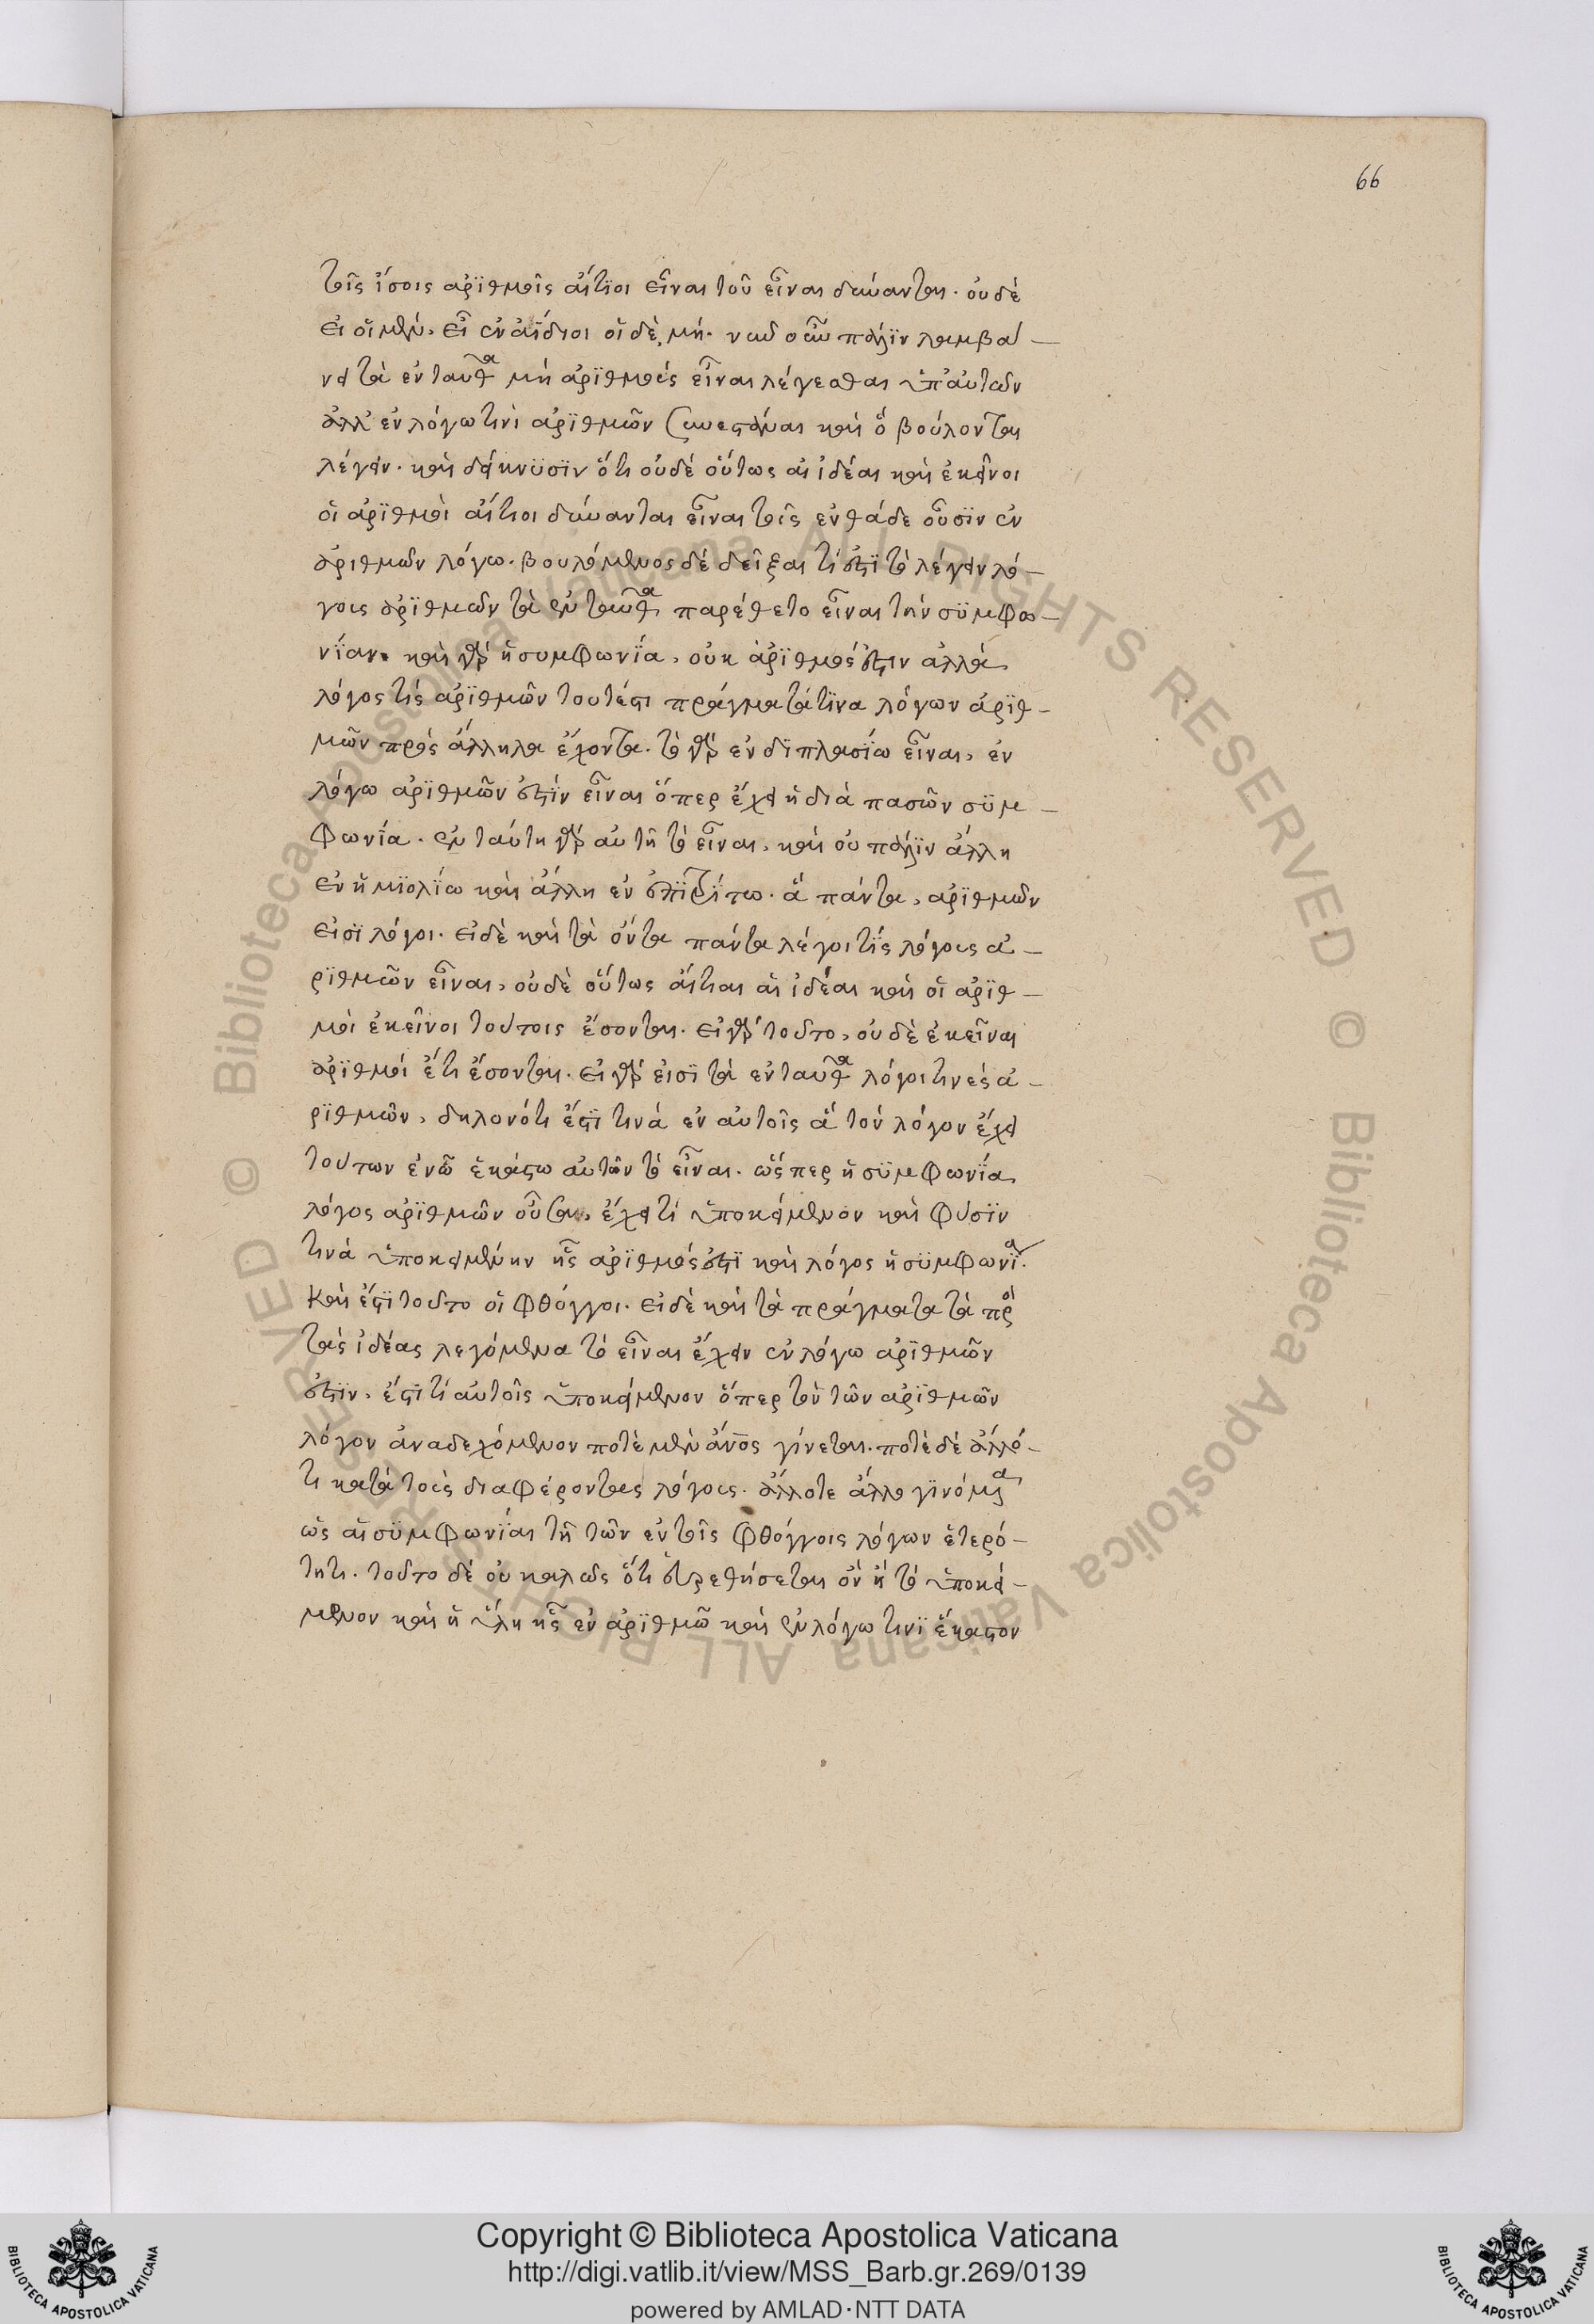 66
τοῖς ἴσοις ἀρϊθμοῖς αἴτϊοι εἶναι τοῦ εἶναι δύνανται. οὐδὲ
εἰ οἱ μὲν, εἶεν ἀΐδιοι οἱ δὲ, μή. νῦν οὖν πάλϊν λαμβά-
νει τὰ ἐνταῦθα μὴ ἀρϊθμοὺς εἶναι λέγεσθαι ὑπ' αὐτῶν
ἀλλ' ἐν λόγω τινὶ ἀρϊθμῶν συνεστάναι καὶ ὃ βούλονται
λέγειν. καὶ δείκνϋσϊν ὅτι οὐδὲ οὕτως αἱ ἰδέαι καὶ ἐκεῖνοι
οἱ ἀρϊθμοὶ αἴτιοι δύνανται εἶναι τοῖς ἐνθάδε οὖσϊν ἐν
ἀριθμῶν λόγω. βουλόμενος δὲ δεῖξαι τί ἐστϊ τὸ λέγειν λό-
γους ἀρϊθμῶν τὰ ἐνταῦθα παρέθετο εἶναι τὴν σϋμφω-
νΐαν. καὶ γὰρ ἡ συμφωνΐα, οὐκ ἀρϊθμός ἐστιν ἀλλὰ
λόγος τις ἀρϊθμῶν τουτέστι πράγματά τϊνα λόγων ἀρϊθ-
μῶν πρὸς ἄλληλα ἔχοντα. τὸ γὰρ ἐν δϊπλασΐω εἶναι, ἐν
λόγω ἀρϊθμῶν ἐστϊν εἶναι ὅπερ ἔχει ἡ διὰ πασῶν σϋμ-
φωνΐα. ἐν ταύτη γὰρ αὐτῆ τὸ εἶναι, καὶ οὐ πάλϊν ἄλλη
ἐν ἡμϊολΐω καὶ ἄλλη ἐν ἐπϊτρΐτω. ἃ πάντα, ἀρϊθμῶν
εἰσϊ λόγοι. εἰ δὲ καὶ τὰ ὄντα πάντα λέγοι τὶς λόγους ἀ-
ρϊθμῶν εἶναι, οὐδὲ οὕτως αἴτιαι αἱ ἰδέαι καὶ οἱ ἀρϊθ-
μοὶ ἐκεῖνοι τούτοις ἔσονται. εἰ γὰρ τοῦτο, οὐδὲ ἐκεῖναι
ἀρϊθμοί ἔτι ἔσονται. εἰ γὰρ εἰσϊ τὰ ἐνταῦθα λόγοι τινὲς ἀ-
ρϊθμῶν, δηλονότι ἔστϊ τινὰ ἐν αὐτοῖς ἃ τὸν λόγον ἔχει
τούτων ἐν ὧ ἑκάστω αὐτῶν τὸ εἶναι. ὥσπερ ἡ σϋμφωνΐα
λόγος ἀρϊθμῶν οὖσα, ἔχει τί ὑποκείμενον καὶ φύσϊν
τινὰ ὑποκειμένην ἧς ἀρϊθμός ἐστϊ καὶ λόγος ἡ σϋμφωνΐα.
καὶ ἔστϊ τοῦτο οἱ φθόγγοι. εἰ δὲ καὶ τὰ πράγματα τὰ πρὸς
τὰς ἰδέας λεγόμενα τὸ εἶναι ἔχειν ἐν λόγω ἀρϊθμῶν
ἐστϊν, ἔστϊ τί αὐτοῖς ὑποκείμενον ὅπερ τὸν τῶν ἀρϊθμῶν
λόγον ἀναδεχόμενον ποτὲ μὲν ἄνος γίνεται. ποτὲ δὲ ἄλλό-
τι κατὰ τοὺς διαφέροντας λόγους. ἄλλοτε ἄλλο γϊνόμενα
ὡς αἱ σϋμφωνΐαι τῆ τῶν ἐν τοῖς φθόγγοις λόγων ἑτερό-
τητι. τοῦτο δὲ οὐ καλῶς ὅτι εὑρεθήσεται ὂν ἢ τὸ ὑποκεί-
μενον καὶ ἡ ὕλη ἧς ἐν ἀρϊθμῶ καὶ ἐν λόγω τινϊ ἕκαστον
Copyright © Biblioteca Apostolica Vaticana
http://digi.vatlib.it/view/MSS_Barb.gr.269/0139
powered by AMLAD·NTT DATA